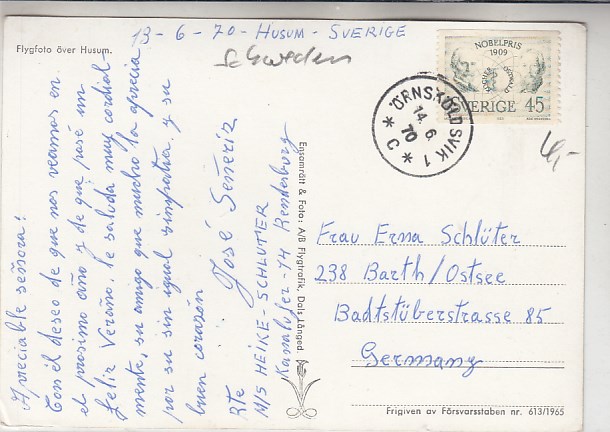 13-6-70-HUSUM-SVERIGE
Schweden
Flygfoto över Husum.
Apreciable señora!
Con él deseo de que nos veamos en
el proximo año y de que pasé un
feliz Verano, le saluda muy cordial-
mente, su amigo que mucho la aprecia
por su sin igual simpatia, y su
buen corazón
José Señeriz
Rte
M/S HEIKE-SCHLUTER
Kanalufer-14 Rendsburg
Ensamrätt & Foto: A/B Flygtrafik, Dals Långed.
NOBELPRIS
1909
SVERIGE 45
ÖRNSKÖLDSVIK 1
14.6.
70
* C *
4,-
Frau Erna Schlüter
238 Barth/Ostsee
Badtstüberstrasse 85
Germany
Frigiven av Försvarsstaben nr. 613/1965